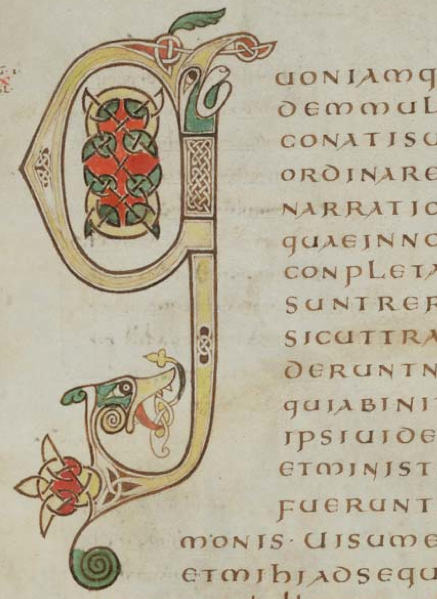 QUONIAMQ
DEMMUL
CONATISU
ORDINARE
NARRATIO
QUAEINNO
CONPLETA
SUNTRER
SICUTTRA
DERUNTN
QUIABINIT
IPSIUIDE
ETMINIST
FUERUNT
MONIS· UISUME
ETMIHIADSEQU